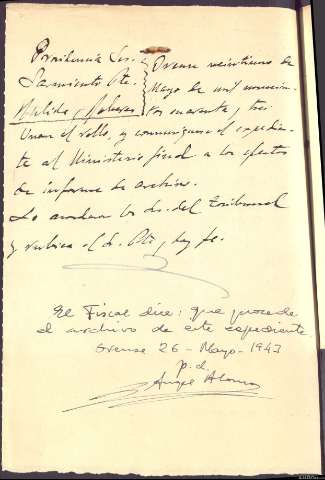 Providencia Sres.
Sarmiento Pte.
Pulido y Cabezas
Orense veintiuno de
Mayo de mil novecien-
tos cuarenta y tres
Unan el rollo, y comuniquese el expedien-
te al Ministerio fiscal a los efectos
de informe de archivo.
Lo acordaron los Sres. del Tribunal
y rubrica el Sr. Pte, doy fe.
El Fiscal dice: que procede
el archivo de este expediente
Orense 26 - Mayo - 1943
p.d.
Angel Alonso